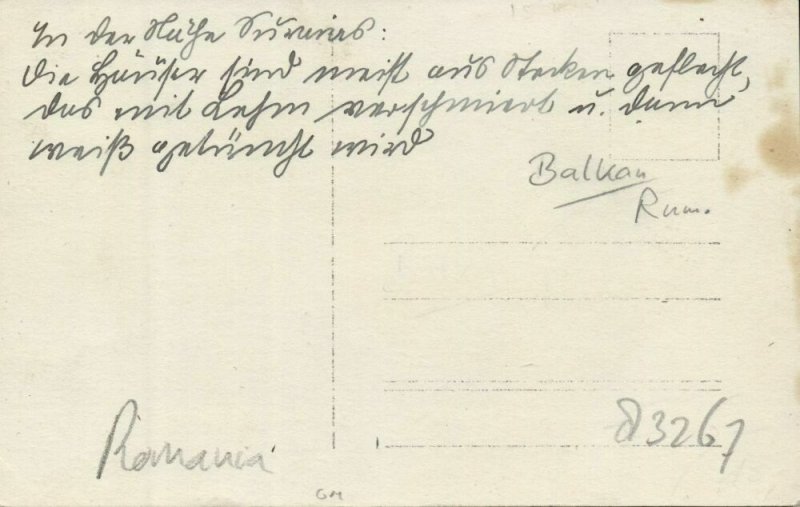 In der Nähe Suraias:
Die Häuser sind meist aus Stecken geflecht,
das mit Lehm verschmiert u. dann
weiß getüncht wird
Balkan
Rum.
Romania
3267
GM